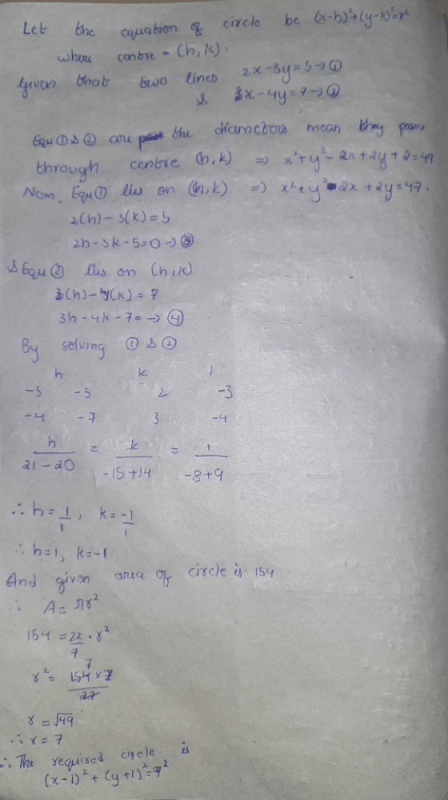 Let the equation of circle be (x-h)²+(y-k)²=r²
where centre = (h, k).
Given that two lines 2x-3y=5→①
& 3x-4y=7→②
Equ ① & ② are the diameters mean they pass
through centre (h, k) ⇒ x²+y²-2x+2y+2=49
Now, Equ ① lies on (h, k) ⇒ x²+y²-2x+2y=47.
2(h)-3(k)=5
2h-3k-5=0→③
& Equ ② lies on (h, k)
3(h)-4(k)=7
3h-4k-7=→④
By solving ① & ②
h k 1
-3 -5 2 -3
-4 -7 3 -4
h/(21-20) = k/(-15+14) = 1/(-8+9)
∴ h=1/1, k=-1/1
∴ h=1, k=-1
And given area of circle is 154
∴ A=πr²
154=22/7·r²
r²=(154×7)/22 7
r=√49
∴ r=7
∴ The required circle is
(x-1)²+(y+1)²=7²